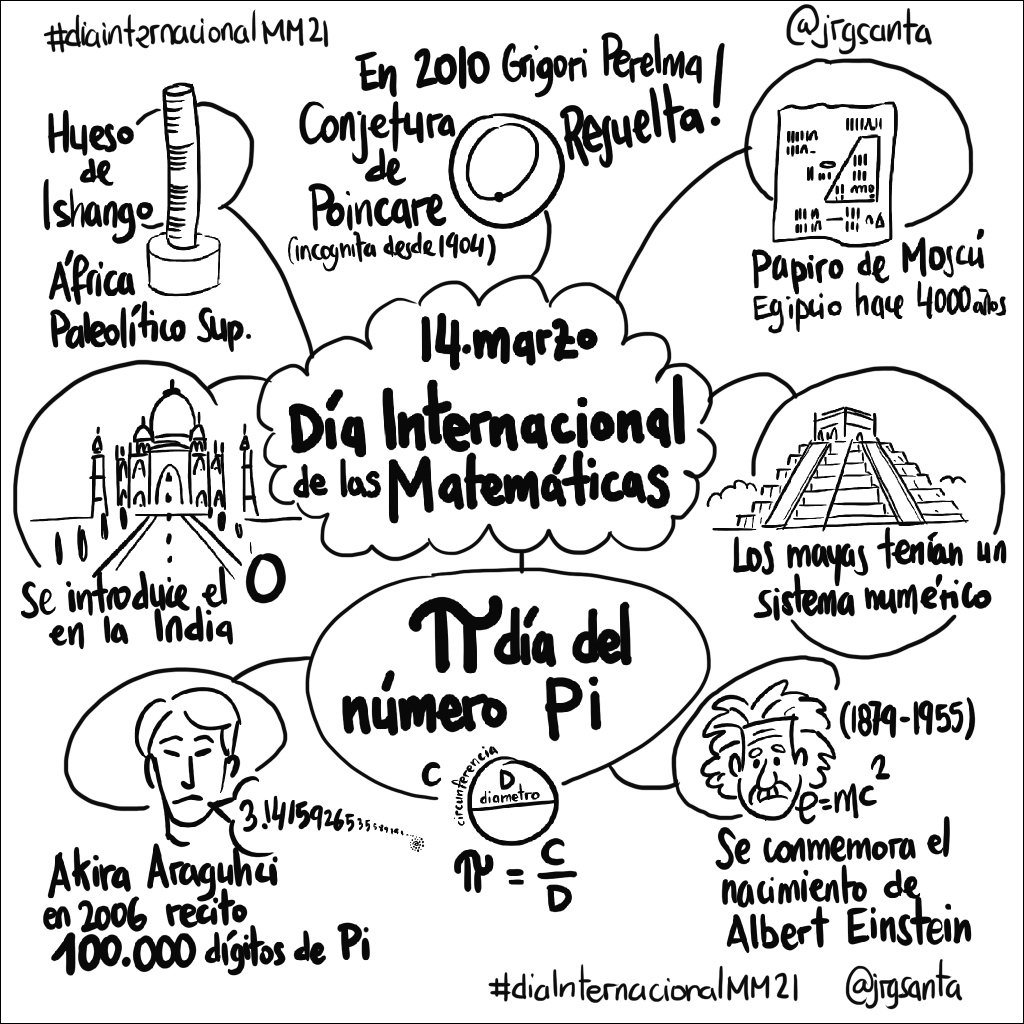 #diainternacionalMM21
@jrgsanta
Hueso
de
Ishango
África
Paleolítico Sup.
En 2010 Grigori Perelma
Resuelta!
Conjetura
de
Poincare
(incognita desde 1904)
Papiro de Moscú
Egipcio hace 4000 años
14.marzo
Día Internacional
de las Matemáticas
Se introduce el 0
en la India
Los mayas tenían un
sistema numérico
π día del
número Pi
C
circunferencia
D
diametro
π = C
D
3.14159265358
Akira Araguhci
en 2006 recito
100.000 dígitos de Pi
(1879-1955)
e=mc²
Se conmemora el
nacimiento de
Albert Einstein
#diaInternacionalMM21
@jrgsanta